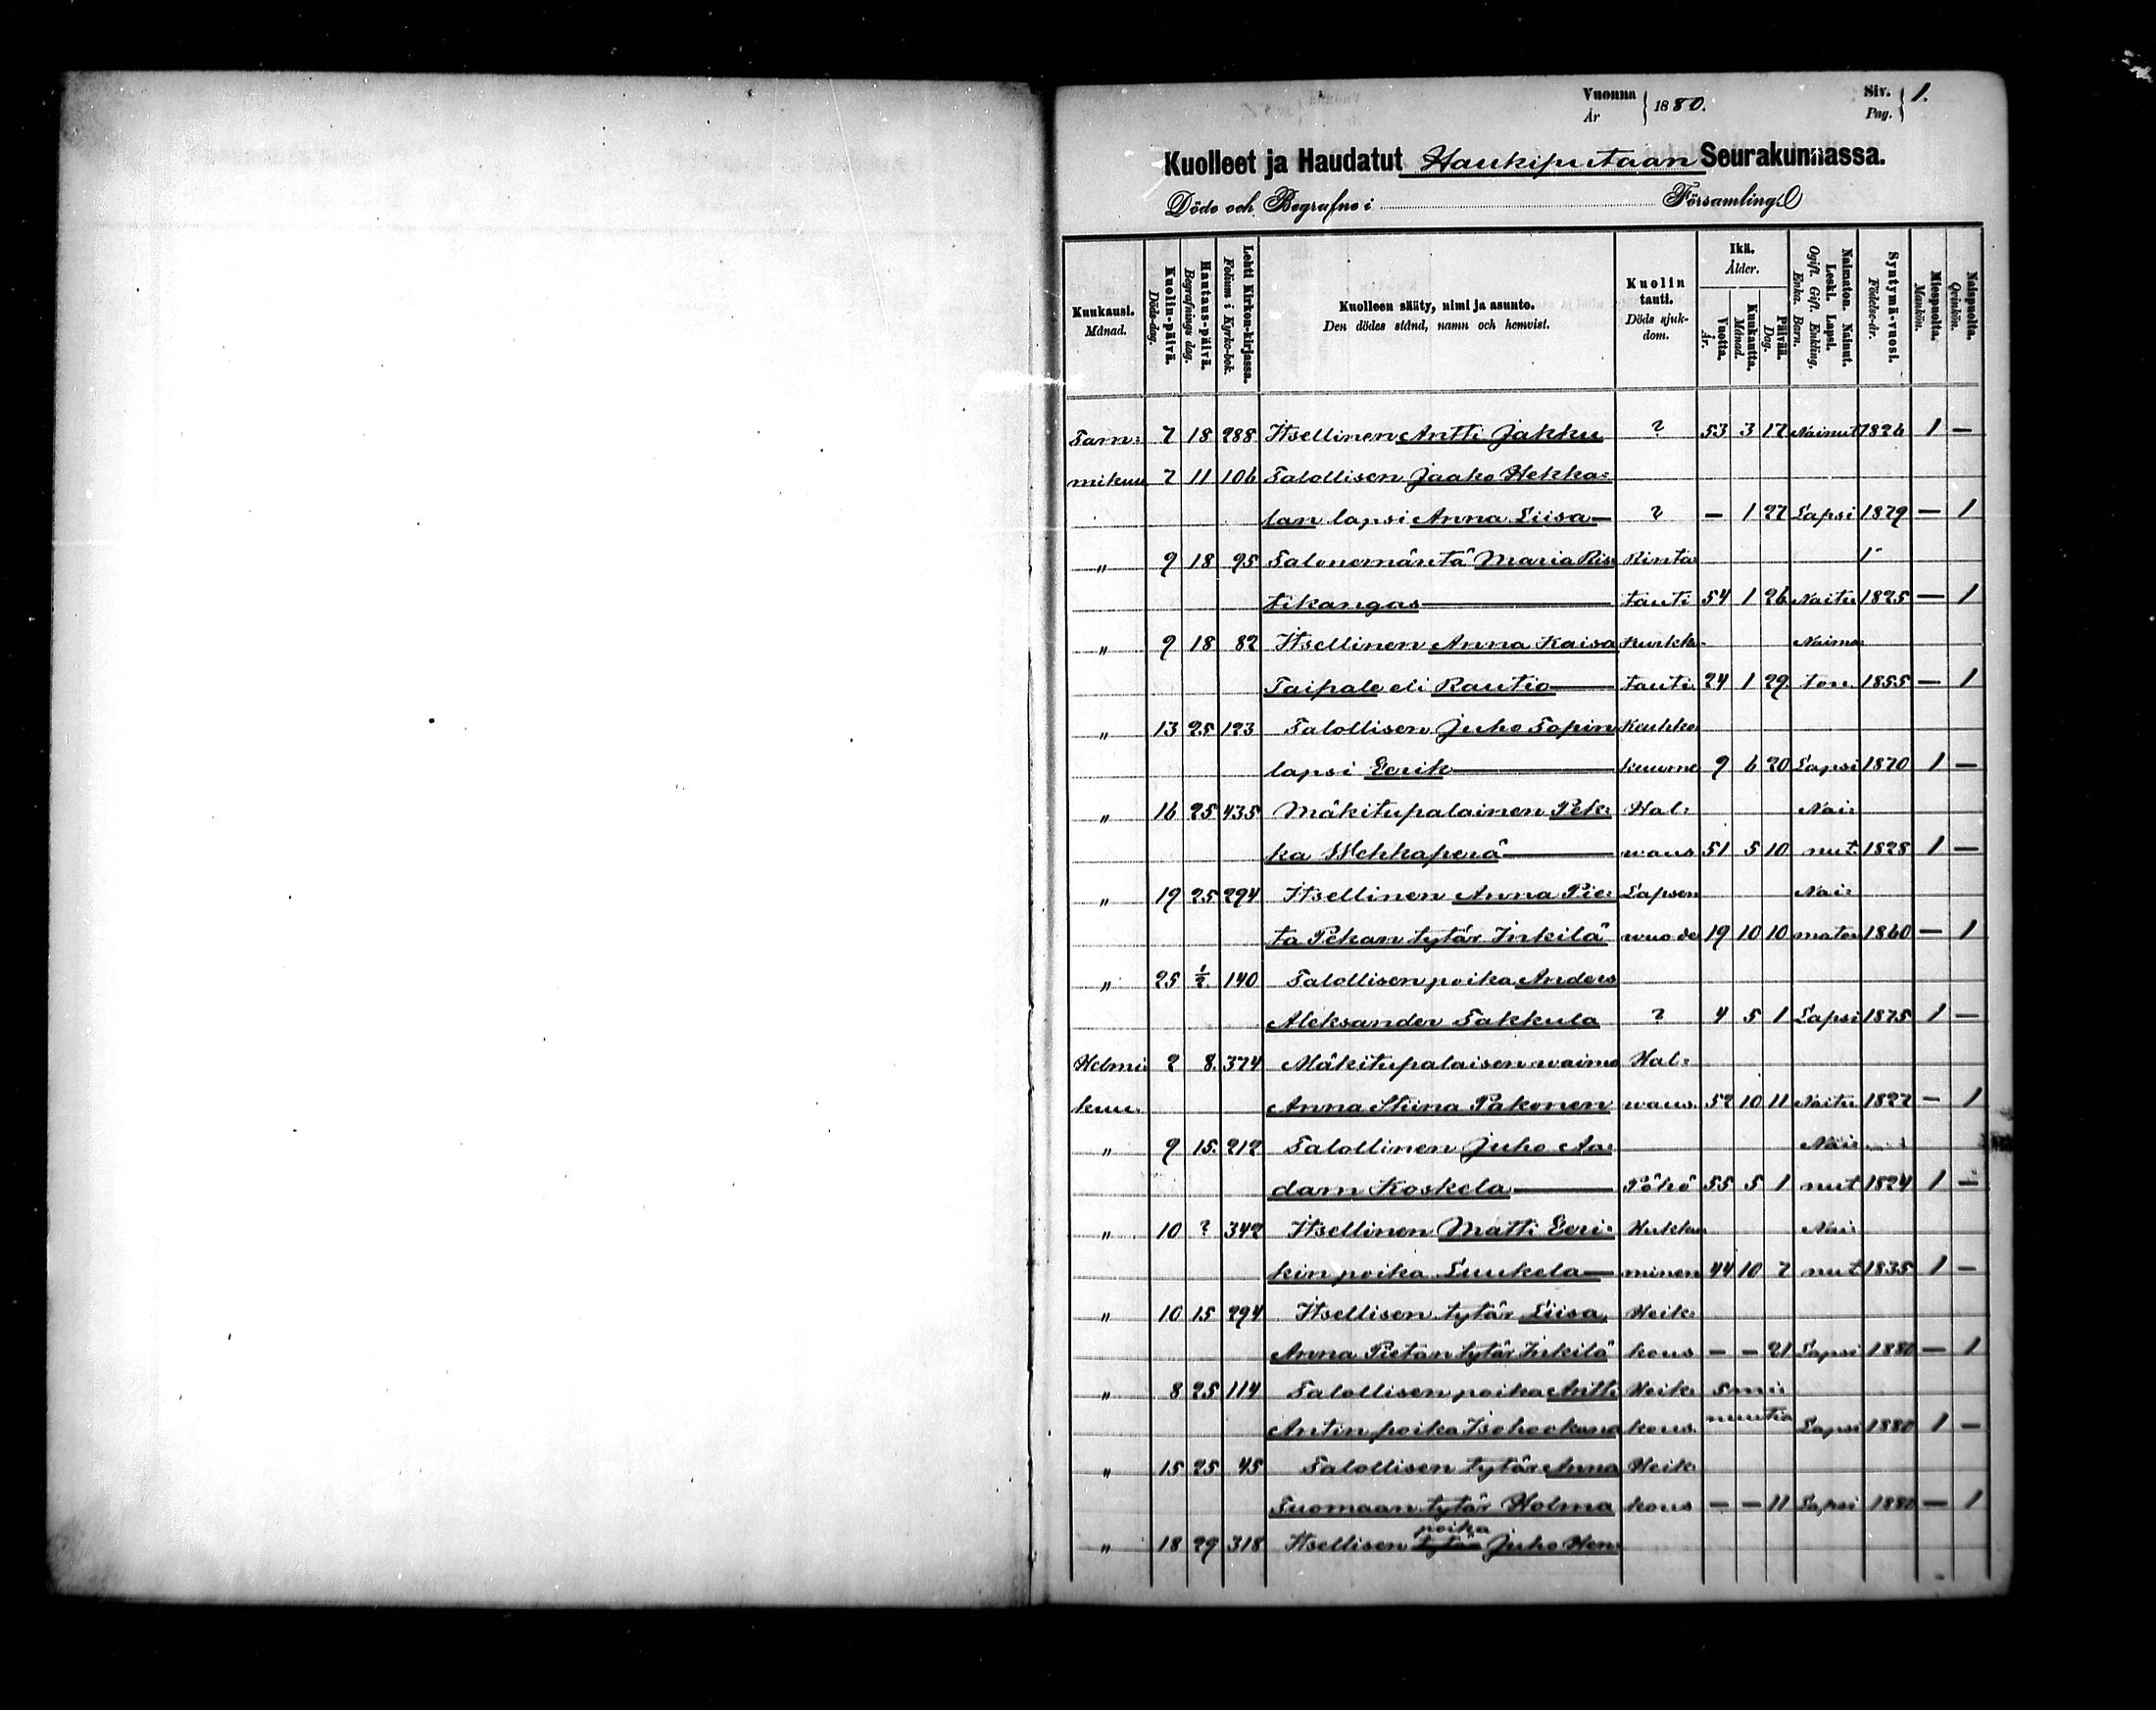 Vuonna År 1880. Siv. Pag. 1.
Kuolleet ja Haudatut Haukiputaan Seurakunnassa.
Döde och Begrafne i Församling.
Kuukausi. Månad.
Kuolin-päivä. Döds-dag.
Hautaus-päivä. Begrafnings dag.
Lehti Kirkon-kirjassa. Folium i Kyrko-bok.
Kuolleen sääty, nimi ja asunto. Den dödes stånd, namn och hemvist.
Kuolin tauti. Döds sjuk-dom.
Ikä. Ålder.
Vuotta. År.
Kuukautta. Månad.
Päivää. Dag.
Naimaton. Nainut. Leski. Lapsi. Ogift. Gift. Enkling, Enka. Barn.
Syntymä-vuosi. Födelse-år.
Miespuolta. Mankön.
Naispuolta. Qvinkön.
Tam= 7 18 288 Itsellinen Antti Jakku ? 53 3 17 Nainut 1826 1 —
mikuu 7 11 106 Talollisen Jaako Hekka=
lan lapsi Anna Liisa — ? — 1 27 Lapsi 1879 — 1
" 9 18 95 Talonemäntä Maria Ris= Rinta
tikangas — tauti 54 1 26 Naitu 1825 — 1
" 9 18 82 Itsellinen Anna Kaisa Kurkku Naima=
Taipale eli Rautio — tauti 24 1 29 ton 1855 — 1
" 13 25 123 Talollisen Juho Topin Keuhko
lapsi Eerik — kuume 9 6 20 Lapsi 1870 1 —
" 16 25 435 Mäkitupalainen Pek= Hal= Nai=
ka Wehkaperä — waus 51 5 10 nut 1828 1 —
" 19 25 294 Itsellinen Anna Pie= Lapsen Nai=
ta Pekan tytär Inkilä wuode 19 10 10 maton 1860 — 1
" 25 1/2 140 Talollisen poika Anders
Aleksander Takkula ? 4 5 1 Lapsi 1875 1 —
Helmi= 2 8. 374 Mäkitupalaisen waimo Hal=
kuu. Anna Stiina Pakonen waus 52 10 11 Naitu 1827 — 1
" 9 15. 212 Talollinen Juho Aa= Nai=
dam Koskela — Pöhö 55 5 1 nut 1824 1 —
" 10 ? 342 Itsellinen Matti Eeri= Hukku Nai=
kin poika Luukela — minen 44 10 7 nut 1835 1 —
" 10 15 294 Itsellisen tytär Liisa Heik=
Anna Pietan tytär Inkilä kous — — 21 Lapsi 1880 — 1
" 8 25 114 Talollisen poika Antti Heik= 5 mi=
Antin poika Isohookana kous nuutia Lapsi 1880 1 —
" 15 25 45 Talollisen tytär Anna Heik=
Tuomaan tytär Holma kous — — 11 Lapsi 1880 — 1
poika
" 18 29 318 Itsellisen tytär Juho Hen=